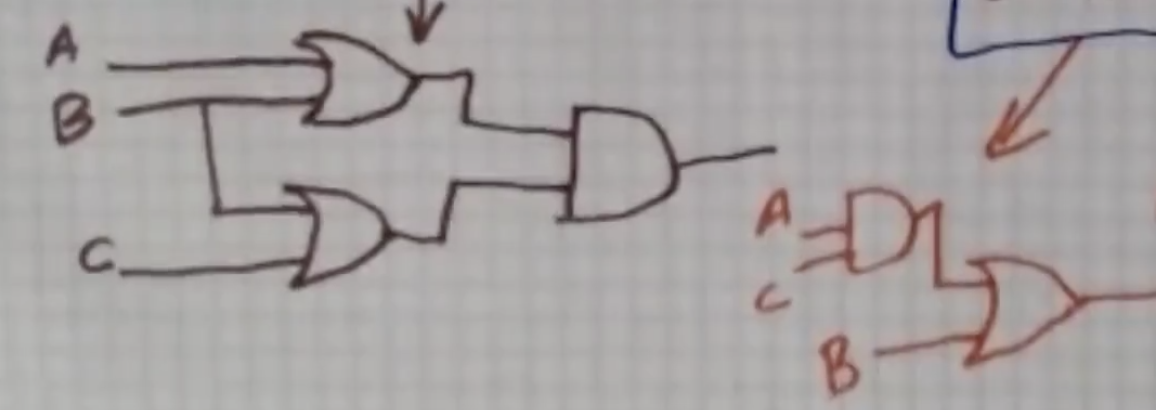 A
B
C
A
C
B